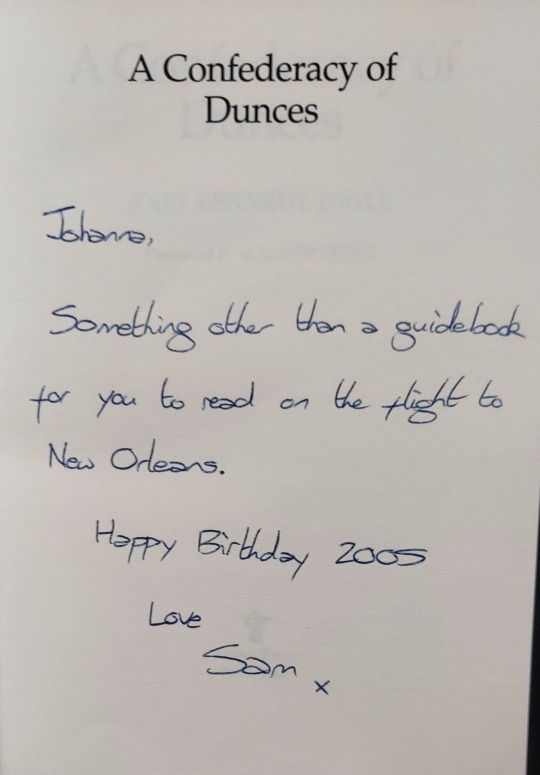 A Confederacy of
Dunces
Johanna,
Something other than a guidebook
for you to read on the flight to
New Orleans.
Happy Birthday 2005
Love
Sam x